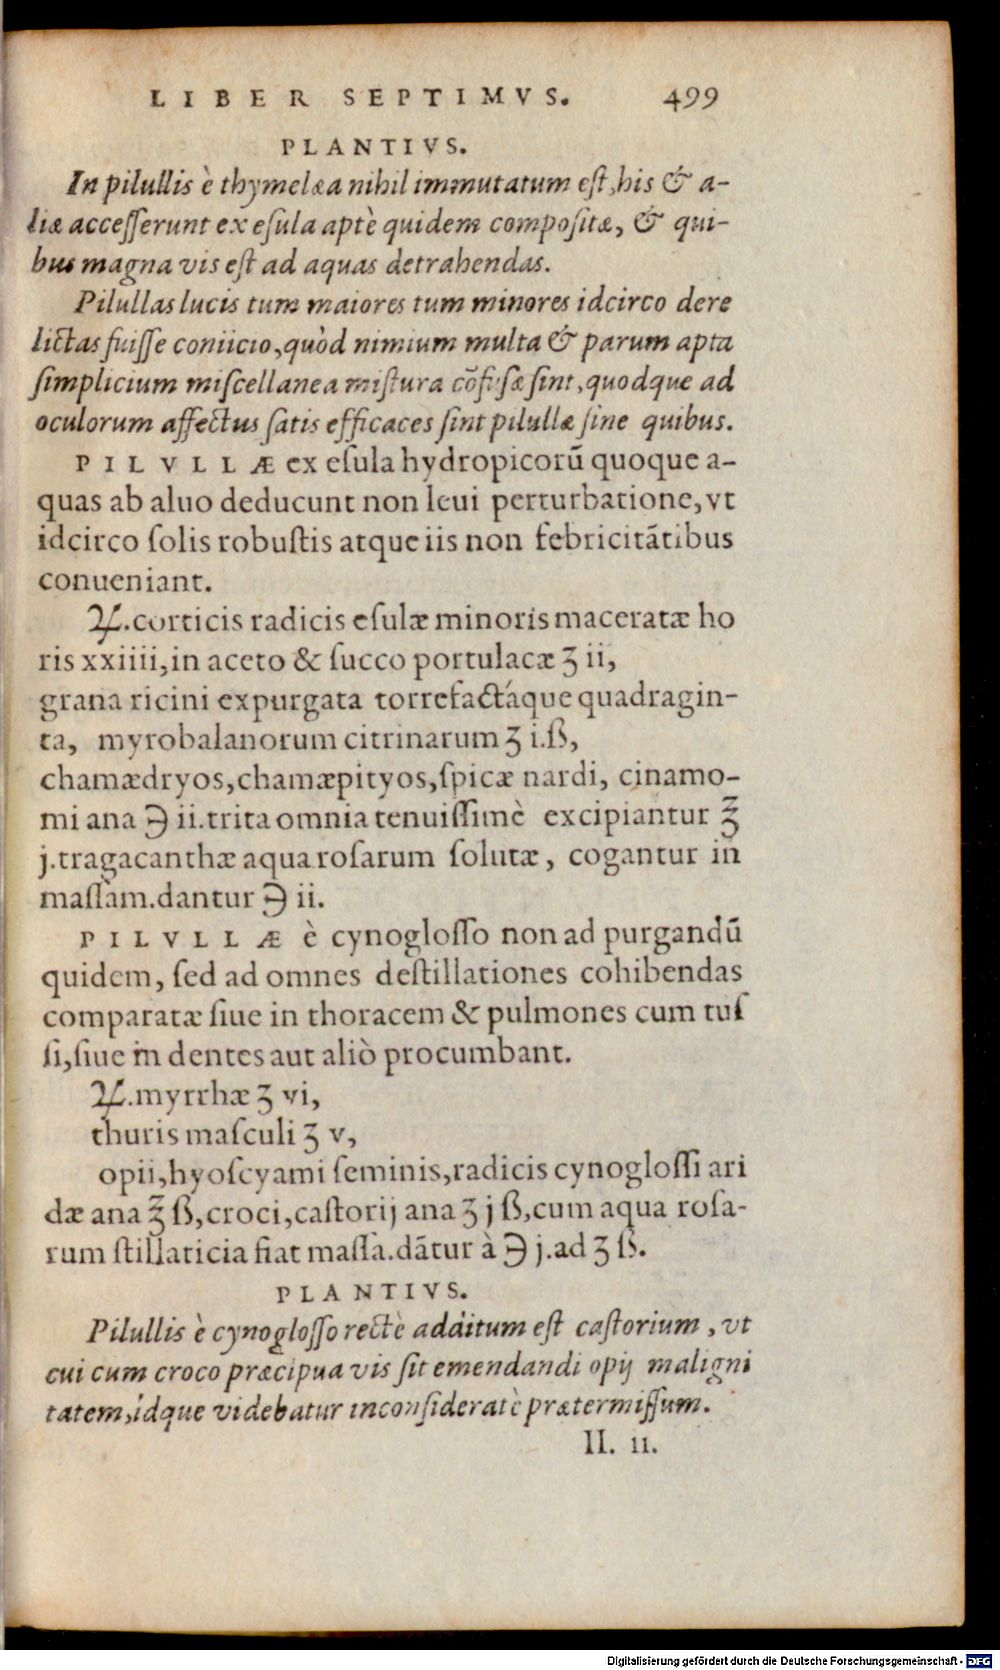 LIBER SEPTIMVS. 499
PLANTIVS.
In pilullis è thymelæa nihil immutatum eſt, his & a-
liæ acceſſerunt ex eſula aptè quidem compoſitæ, & qui-
bus magna vis eſt ad aquas detrahendas.
Pilullas lucis tum maiores tum minores idcirco dere
lictas fuiſſe coniicio, quòd nimium multa & parum apta
ſimplicium miſcellanea miſtura cõfuſæ ſint, quodque ad
oculorum affectus ſatis efficaces ſint pilullæ ſine quibus.
PILVLLÆ ex eſula hydropicorũ quoque a-
quas ab aluo deducunt non leui perturbatione, vt
idcirco ſolis robuſtis atque iis non febricitãtibus
conueniant.
℞. corticis radicis eſulæ minoris maceratæ ho
ris xxiiii, in aceto & ſucco portulacæ ʒ ii,
grana ricini expurgata torrefactáque quadragin-
ta, myrobalanorum citrinarum ʒ i. ß,
chamædryos, chamæpityos, ſpicæ nardi, cinamo-
mi ana ℈ ii. trita omnia tenuiſſimè excipiantur ℥
j. tragacanthæ aqua roſarum ſolutæ, cogantur in
maſſam. dantur ℈ ii.
PILVLLÆ è cynogloſſo non ad purgandũ
quidem, ſed ad omnes deſtillationes cohibendas
comparatæ ſiue in thoracem & pulmones cum tuſ
ſi, ſiue in dentes aut aliò procumbant.
℞. myrrhæ ʒ vi,
thuris maſculi ʒ v,
opii, hyoſcyami ſeminis, radicis cynogloſſi ari
dæ ana ℥ ß, croci, caſtorij ana ʒ j ß, cum aqua roſa-
rum ſtillaticia fiat maſſa. dãtur à ℈ j. ad ʒ ß.
PLANTIVS.
Pilullis è cynogloſſo rectè additum eſt caſtorium, vt
cui cum croco præcipua vis ſit emendandi opij maligni
tatem, idque videbatur inconſideratè prætermiſſum.
II. ii.
Digitalisierung gefördert durch die Deutsche Forschungsgemeinschaft - DFG